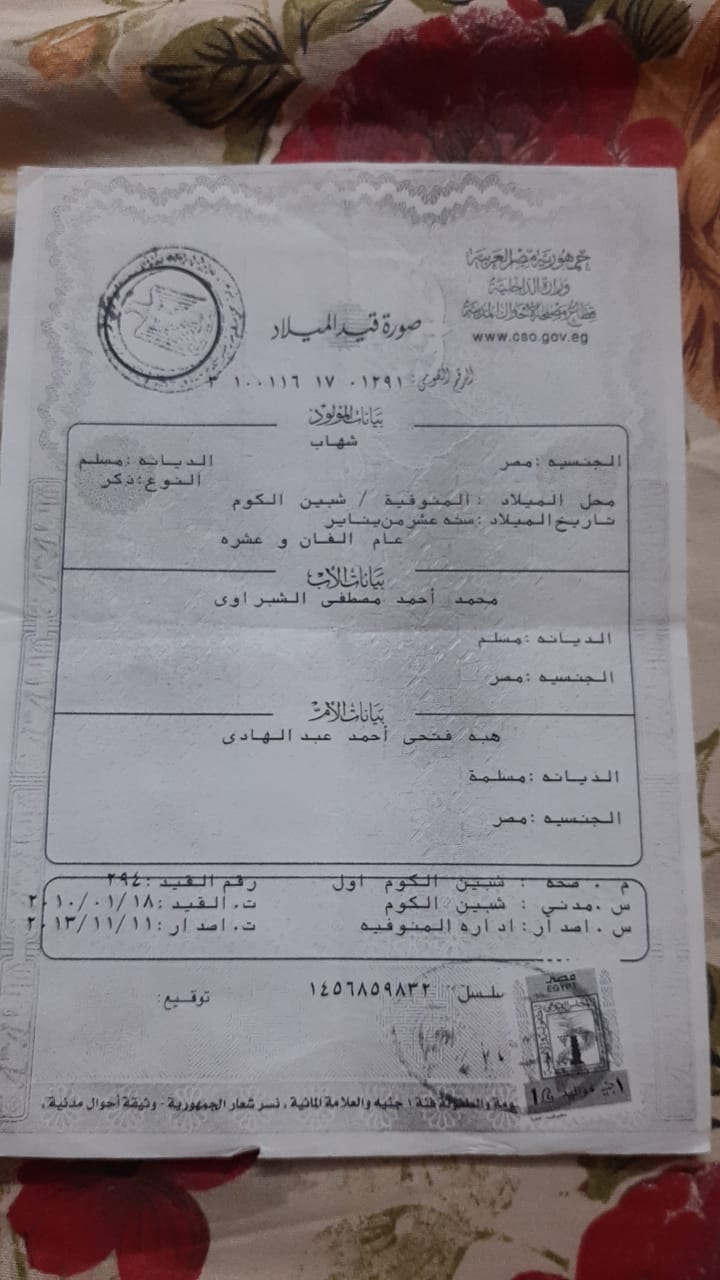 جمهورية مصر العربية
وزارة الداخلية
قطاع مصلحة الأحوال المدنية
www.cso.gov.eg
صورة قيد الميلاد
الرقم القومى: ٣ ١٠٠١١٦ ١٧ ٠١٢٩١
بيانات المولود
شهاب
الجنسيه :مصر الديانه :مسلم
النوع:ذكر
محل الميلاد : المنوفية / شبين الكوم
تاريخ الميلاد :سته عشر من يناير
عام الفان و عشره
بيانات الأب
محمد أحمد مصطفى الشبراوى
الديانه :مسلم
الجنسيه :مصر
بيانات الأم
هبه فتحى أحمد عبد الهادى
الديانه :مسلمة
الجنسيه :مصر
م . صحه : شبين الكوم اول رقم القيد :٢٩٤
س .مدني : شبين الكوم ت. القيد :٢٠١٠/٠١/١٨
س . اصدار: اداره المنوفيه ت. اصدار :٢٠١٣/١١/١١
مسلسل ١٤٥٦٨٥٩٨٣٢ توقيع:
مصر
EGYPT
ومة والطفولة فئة ١ جنيه والعلامة المائية ، نسر شعار الجمهورية - وثيقة أحوال مدنية ،